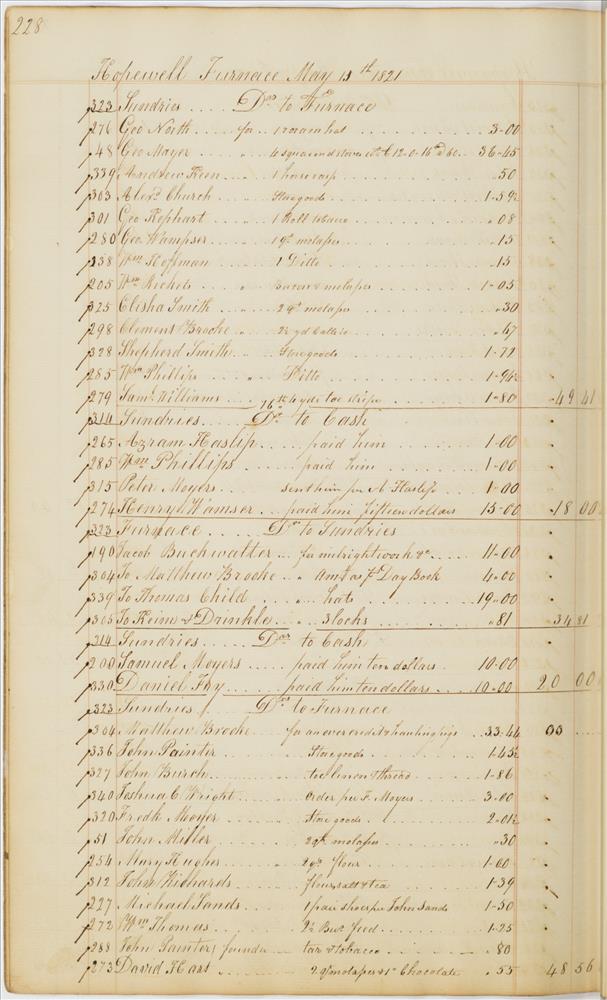 228
Hopewell Furnace May 15th 1821
323 Sundries .... Drs to Furnace
276 Geo North .... for .. 1 roram hat ... 3-00
48 Geo Mayer .... " .. 4 square end stoves 12-0-16 36-45
339 Andrew Keen ... " 1 horse .50
303 Alexr Church ... " Storegoods ... 1-59½
301 Geo Kephart ... " 1 Roll tobacco .. " 08
280 Geo. Wampser ... " 1 Qt molasses ... " 15
238 Wm Hoffman ... " 1 Ditto .. " 15
205 Wm Nichols ... " Bacon & molasses ... 1-05
325 Elisha Smith ... " 2 qt molasses ... " 30
298 Clement Brooke .. " 2½ yd Callico ... " 67
328 Shepherd Smith ... " Storegoods ... 1-72
285 Wm Phillips ... " Ditto ... 1-94½
279 Saml Williams ... " 4 yds tow stripe ... 1-80 49 41
16th
314 Sundries ..... Drs to Cash
265 Azram Haslip .... paid him ... 1-00
285 Wm Phillips .... paid him ... 1-00
315 Peter Moyers ... sent him per A Haslip .. 1-00
274 Henry Wamser ... paid him fifteen dollars 15-00 18 00
323 Furnace ..... Dr to Sundries
190 Jacob Buckwalter ... for millright work &c .... 11-00
304 To Matthew Brooke .. " Amt as pr Day Book 4-00
339 To Thomas Child ... " hats ..... 19-00
305 To Keim & Drinkle .. " 3 locks .... " 81 34 81
314 Sundries ..... Drs to Cash
200 Samuel Moyers .... paid him ten dollars . 10-00
330 Daniel Fry ..... paid him ten dollars ... 10-00 20 00
323 Sundries ..... Drs to Furnace
304 Matthew Brooke ... for an over credit hauling pigs .. 33-44 00
336 John Painter .... " Storegoods .... 1-45½
327 John Burch .... " tow linen & thread .... 1-86
340 Joshua C Wright ... " Order per F Moyers ... 3-00
320 Fredk Mooyer ... " Store goods .... 2-01½
51 John Miller .... " 2 qt molasses .... " 30
254 Mary Hughes ... " 2 qr flour .... 1-00
312 John Richards .... " flour, salt & tea .... 1-39
227 Michael Sands ... " 1 pair shoes per John Sands 1-50
272 Wm Thomas .... " 2½ Bus feed .... 1-25
288 John Painter, founder .. tar & tobacco .... " 80
273 David Hart ...... " 2 qt molasses & Chocolate . " 55 48 56